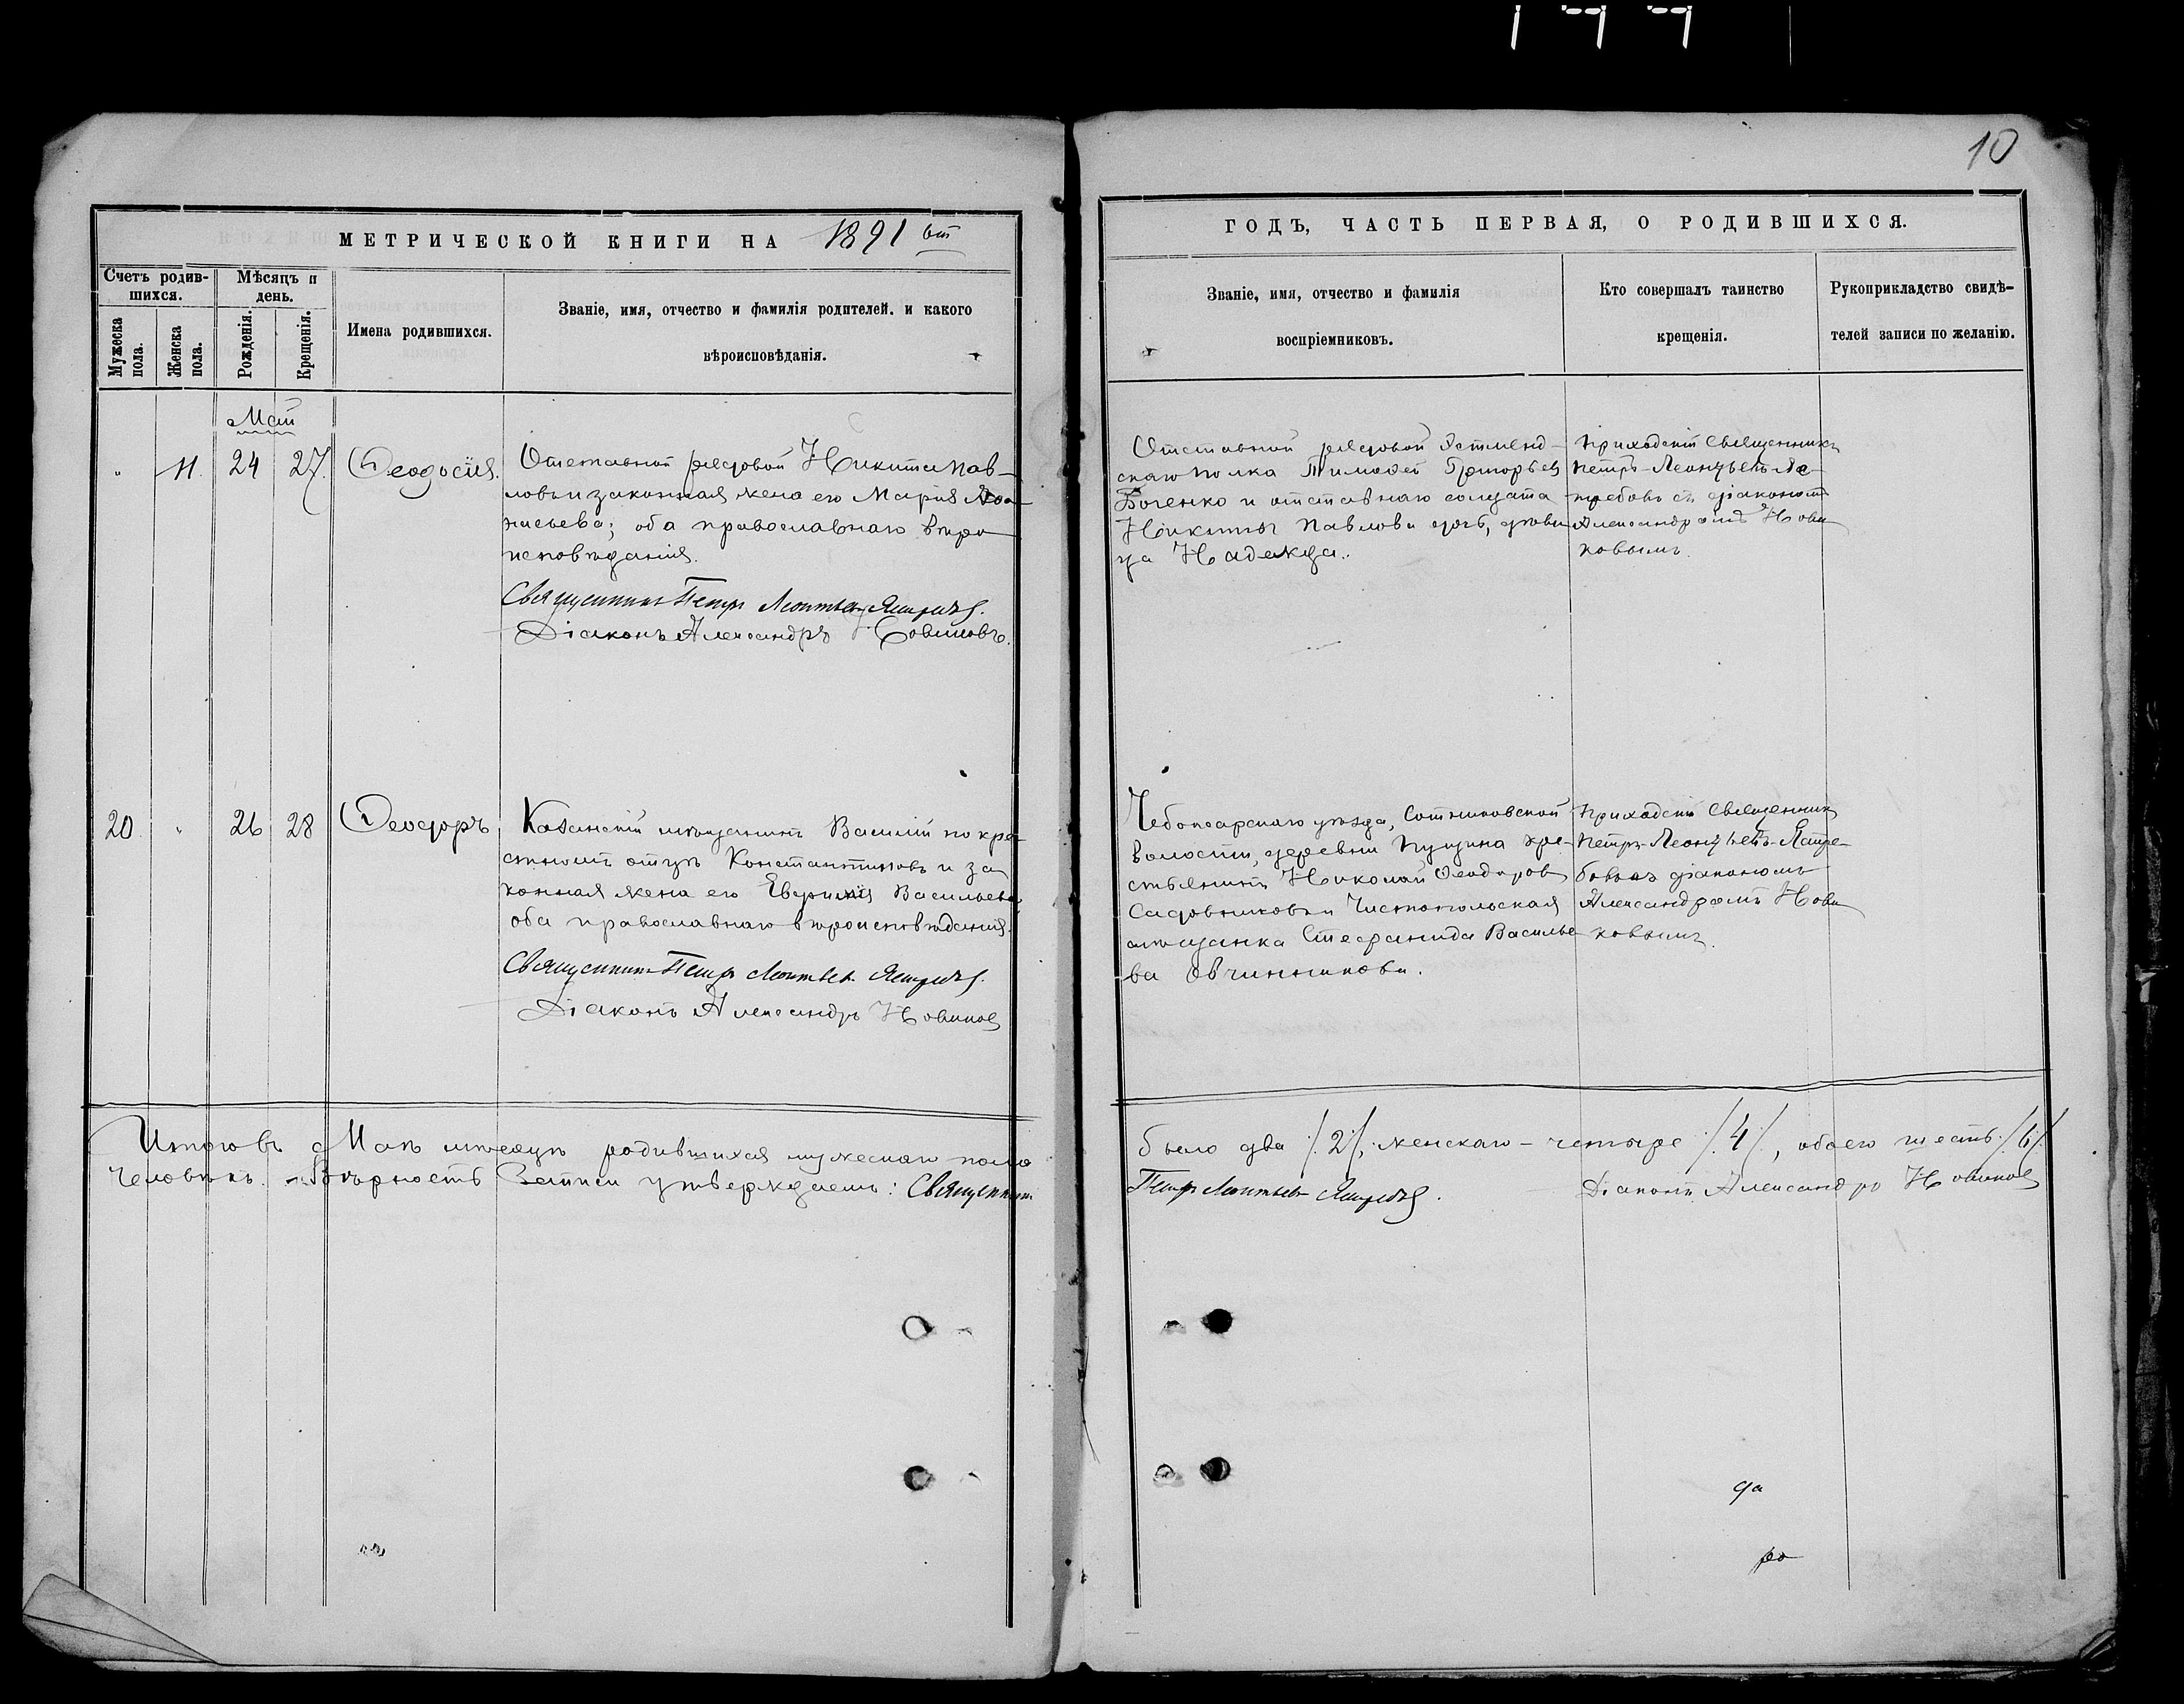 10
МЕТРИЧЕСКОЙ КНИГИ НА 1891 ый
ГОДЪ, ЧАСТЬ ПЕРВАЯ, О РОДИВШИХСЯ.
Счетъ родив-
шихся.
Мужеска пола.
Женска пола.
Мѣсяцъ и
день.
Рожденія.
Крещенія.
Имена родившихся.
Званіе, имя, отчество и фамилія родителей. и какого
вѣроисповѣданія.
Званіе, имя, отчество и фамилія
воспріемниковъ.
Кто совершалъ таинство
крещенія.
Рукоприкладство свидѣ-
телей записи по желанію.
Май
" 11. 24 27. Ѳеодосія.
Отставной рядовой Никита Пав-
ловъ и законная жена его Марія
насьева; оба православнаго вѣро
исповѣданія.
Священникъ Петръ Леонтьевъ Ястребовъ.
Діаконъ Александръ Новиковъ.
Отставной рядовой Эстлянд-
скаго полка Тимофей Григорьевъ
Боченко и отставнаго солдата
Никиты Павлова дочь, дѣви
ца Надежда.
Приходскій Священникъ
Петръ Леонтьевъ Яс-
требовъ съ діакономъ
Александромъ Нови
ковымъ.
20. " 26 28 Ѳеодоръ
Казанскій мѣщанинъ Василій по кре-
стному отцу Константиновъ и за
конная жена его Евфимія Васильева
оба православнаго вѣроисповѣданія.
Священникъ Петръ Леонтьевъ Ястребовъ.
Діаконъ Александръ Новиковъ
Чебоксарскаго уѣзда, Сотниковской
волости, деревни Пущина кре-
стьянинъ Николай Ѳеодоровъ
Садовниковъ и Чистопольская
мѣщанка Стефанида Василье
ва Овчинникова.
Приходскій Священникъ
Петръ Леонтьевъ Ястре-
бовъ съ діакономъ
Александромъ Нови
ковымъ.
Итого въ Маѣ мѣсяцѣ родившихся мужескаго пола
было два /:2:/, женскаго – четыре /:4:/, обоего шесть /:6:/
человѣкъ. Вѣрность записи утверждаемъ: Священникъ
Петръ Леонтьевъ Ястребовъ. Діаконъ Александръ Новиковъ
да
ро